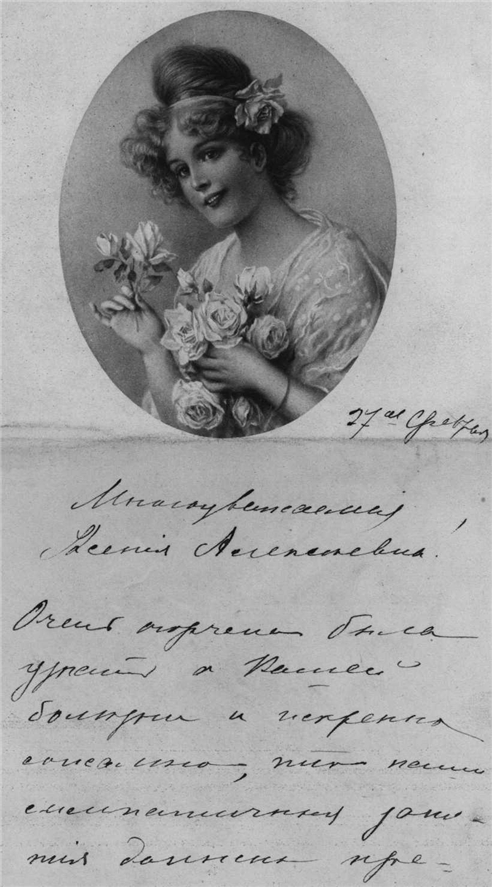 27ое Февраля
Многоуважаемая
Ксенія Алексѣевна!
Очень огорчена была
узнать о Вашей
болѣзни и искренно
сожалѣю, что наши
симпатичныя заня-
тія должны пре-